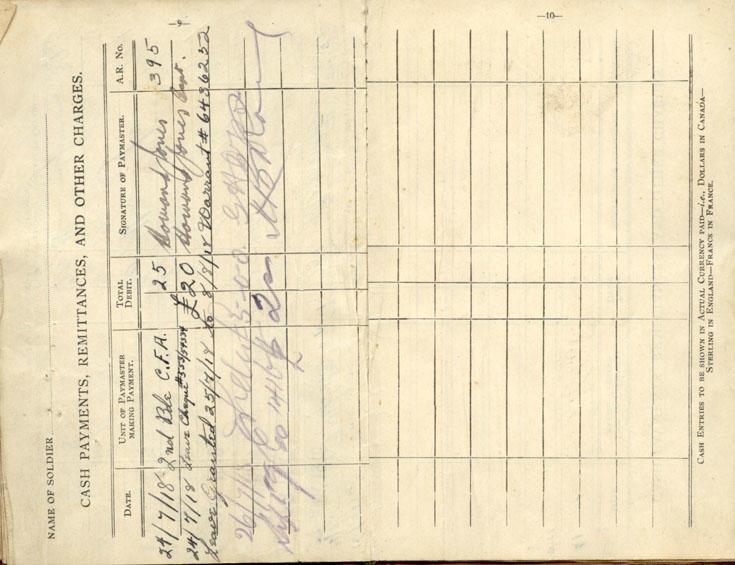 —9—
NAME OF SOLDIER
CASH PAYMENTS, REMITTANCES, AND OTHER CHARGES.
DATE. UNIT OF PAYMASTER MAKING PAYMENT. TOTAL DEBIT. SIGNATURE OF PAYMASTER. A.R. No.
24/7/18 2nd Bde C.F.A. 25 Howard Jones 395
24/7/18 Leave Cheque £20 Howard Jones Capt.
Leave Granted 25/7/18 to 8/8/18 Warrant # 6436252
26/7/18 5-0-0
2
—10—
CASH ENTRIES TO BE SHOWN IN ACTUAL CURRENCY PAID—i.e., DOLLARS IN CANADA—
STERLING IN ENGLAND—FRANCS IN FRANCE.